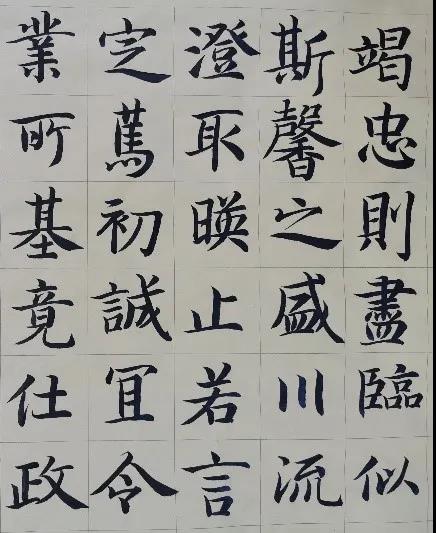 竭忠則盡臨似
斯馨之盛川流
澄取暎止若言
定篤初誠冝令
業所基竟仕政